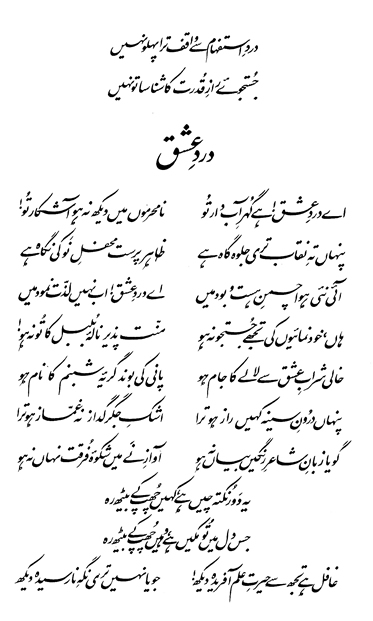 دردِ استفہام سے واقف ترا پہلو نہیں
جستجوئے رازِ قدرت کا شناسا تو نہیں
دردِ عشق
اے دردِ عشق! ہے گہرِ آب دار تُو نامحرموں میں دیکھ نہ ہو آشکار تُو!
پنہاں تہِ نقاب تری جلوہ گاہ ہے ظاہر پرست محفلِ نَو کی نگاہ ہے
آئی نئی ہوا چمنِ ہست و بود میں اے دردِ عشق! اب نہیں لذّت نمود میں
ہاں، خود نمائیوں کی تجھے جستجو نہ ہو منّت پذیر نالۂ بلبل کا تُو نہ ہو!
خالی شرابِ عشق سے لالے کا جام ہو پانی کی بوند گریۂ شبنم کا نام ہو
پنہاں درونِ سینہ کہیں راز ہو ترا اشکِ جگر گداز نہ غمّاز ہو ترا
گویا زبانِ شاعرِ رنگیں بیاں نہ ہو آوازِ نے میں شکوۂ فرقت نہاں نہ ہو
یہ دَور نکتہ چیں ہے، کہیں چھپ کے بیٹھ رہ
جس دل میں تُو مکیں ہے، وہیں چھپ کے بیٹھ رہ
غافل ہے تجھ سے حیرتِ علم آفریدہ دیکھ! جویا نہیں تری نگہِ نارسیدہ دیکھ